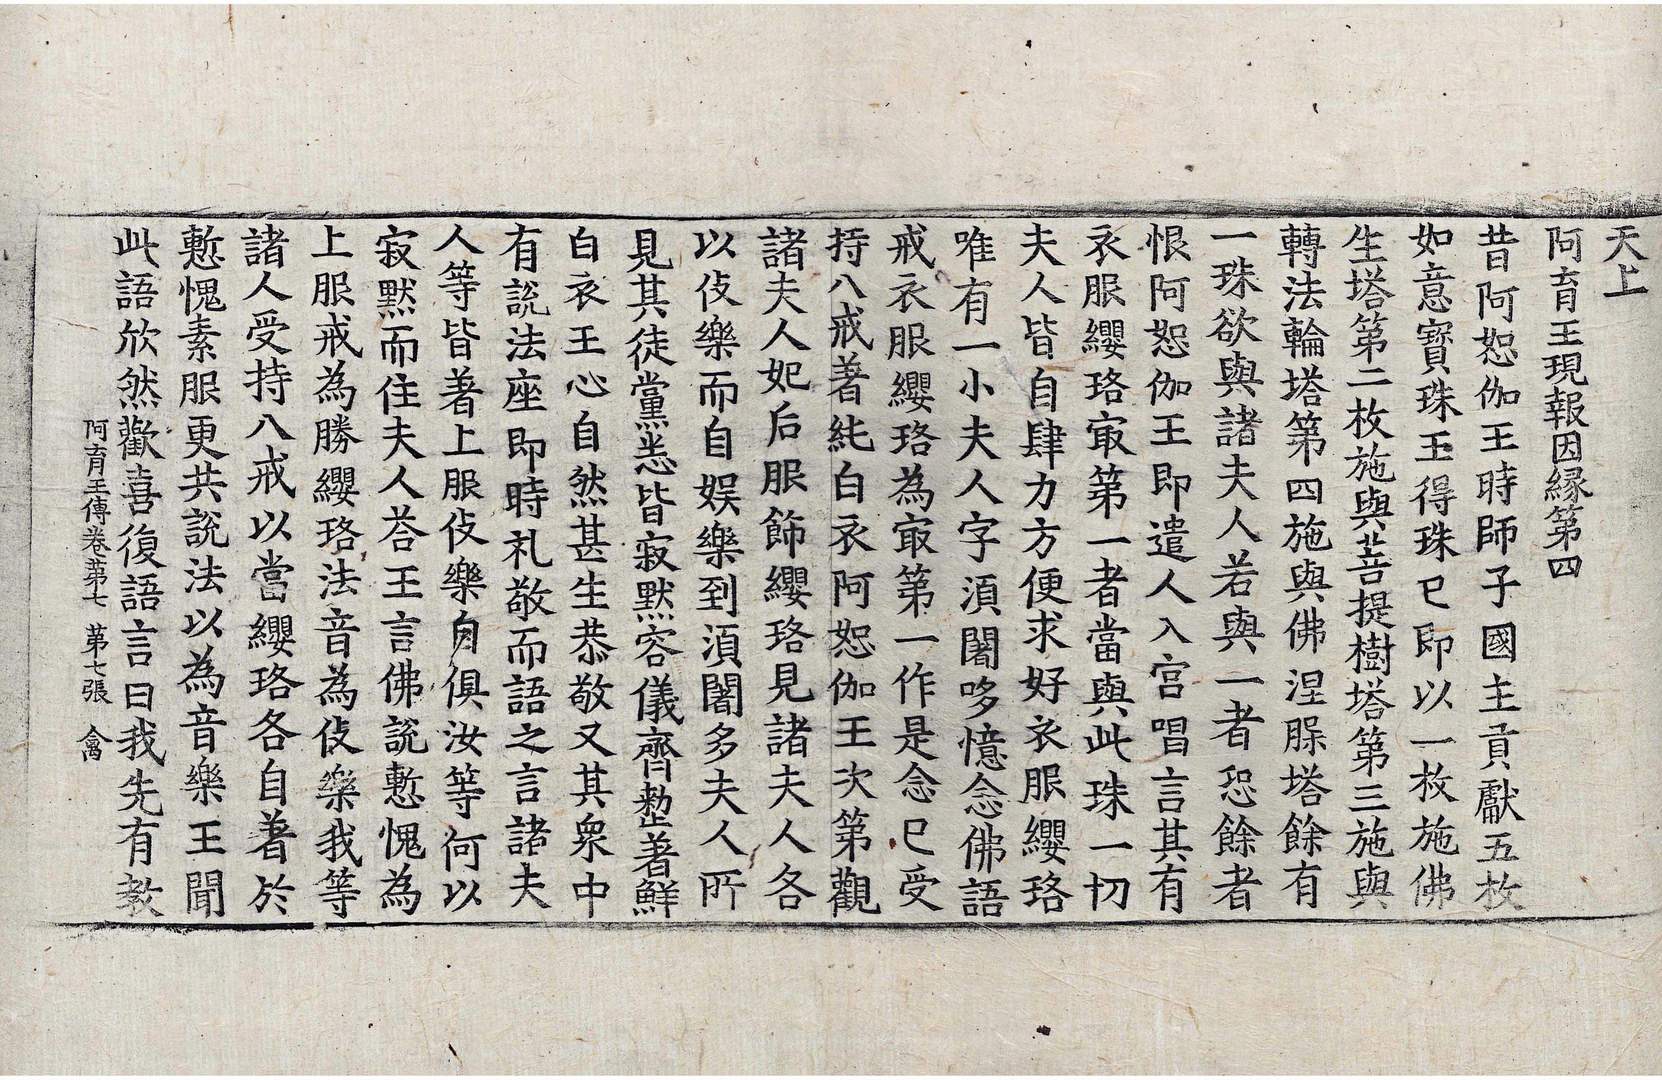 天上
阿育王現報因縁第四
昔阿恕伽王時師子國主貢獻五枚
如意寶珠王得珠已即以一枚施佛
生塔第二枚施與菩提樹塔第三施與
轉法輪塔第四施與佛涅槃塔餘有
一珠欲與諸夫人若與一者恐餘者
恨阿恕伽王即遣人入宮唱言其有
衣服纓珞㝡第一者當與此珠一切
夫人皆自肆力方便求好衣服纓珞
唯有一小夫人字湏闍哆憶念佛語
戒衣服纓珞為㝡第一作是念已受
持八戒著純白衣阿恕伽王次第觀
諸夫人妃后服飾纓珞見諸夫人各
以伎樂而自娛樂到湏闍多夫人所
見其徒黨悉皆寂默容儀齊整著鮮
白衣王心自然甚生恭敬又其衆中
有說法座即時礼敬而語之言諸夫
人等皆著上服伎樂自俱汝等何以
寂默而住夫人荅王言佛說慙愧為
上服戒為勝纓珞法音為伎樂我等
諸人受持八戒以當纓珞各自著於
慙愧素服更共説法以為音樂王聞
此語欣然歡喜復語言曰我先有教
阿育王傳卷第七 第七張 禽